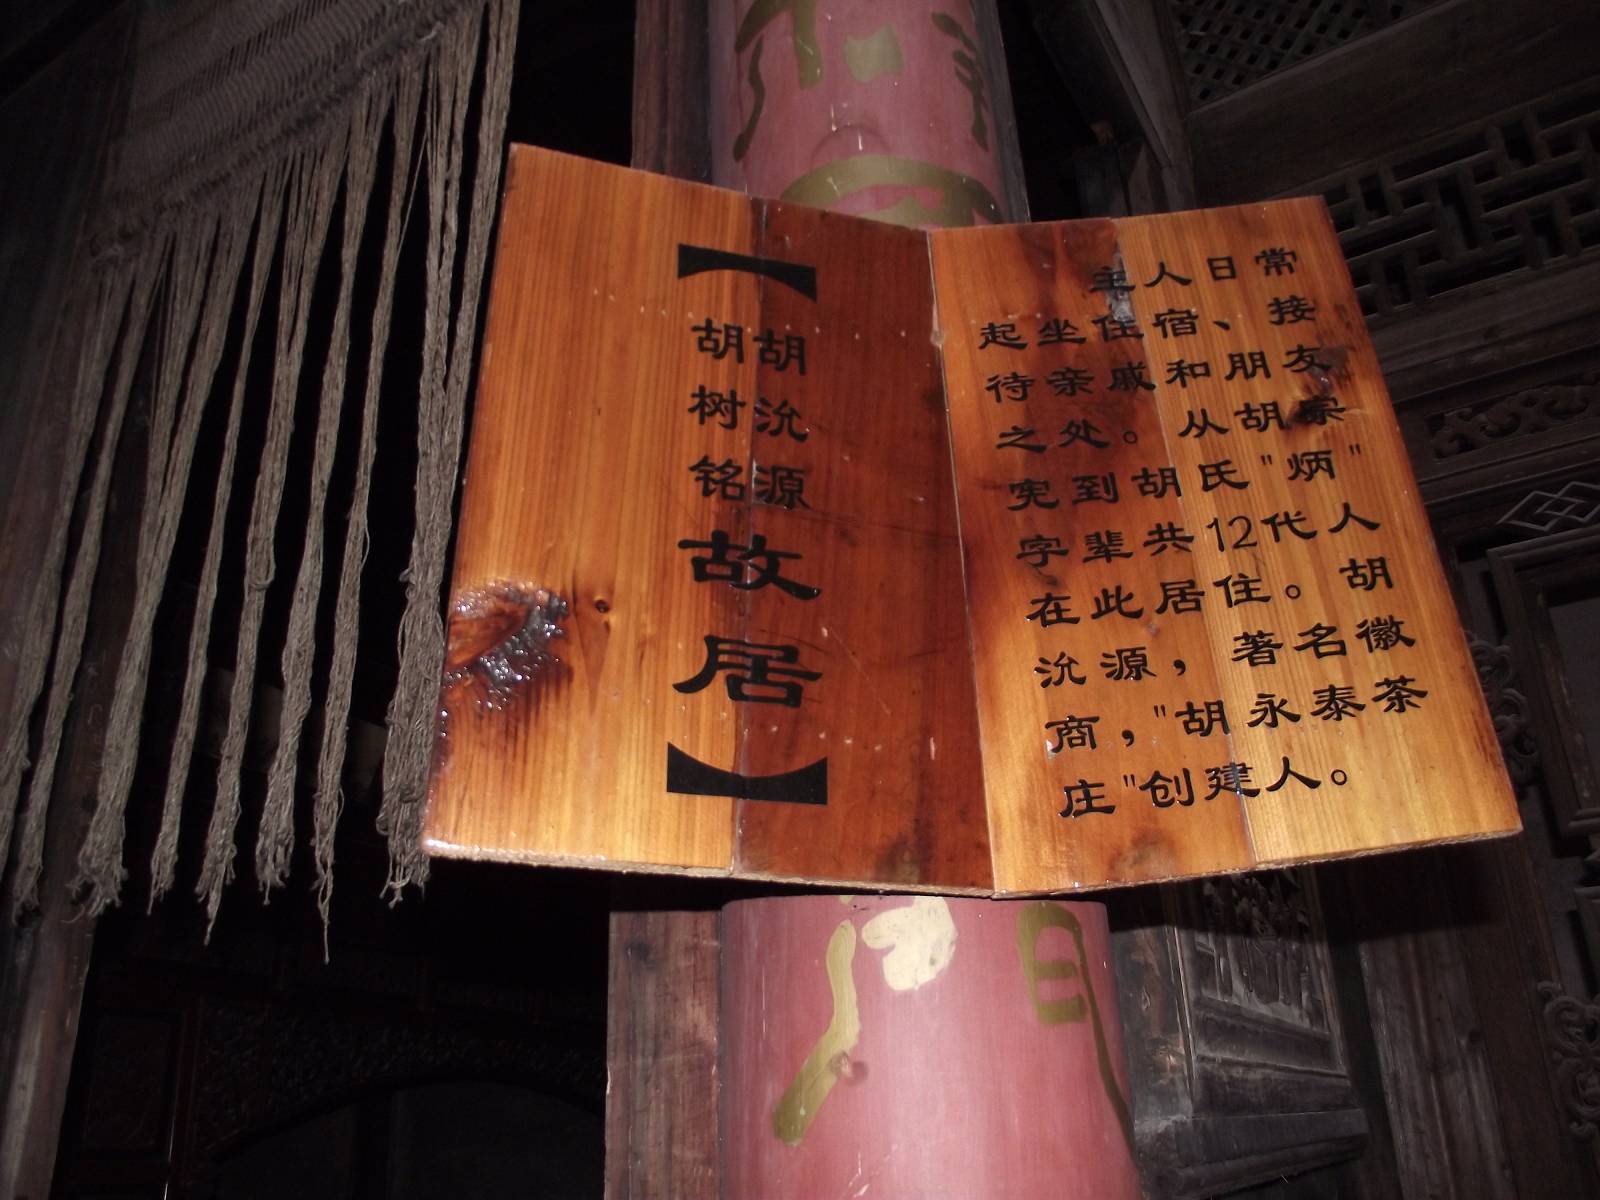 【胡沇源
胡树铭
故居】
主人日常
起坐住宿、接
待亲戚和朋友
之处。从胡宗
宪到胡氏"炳"
字辈共12代人
在此居住。胡
沇源，著名徽
商，"胡永泰茶
庄"创建人。